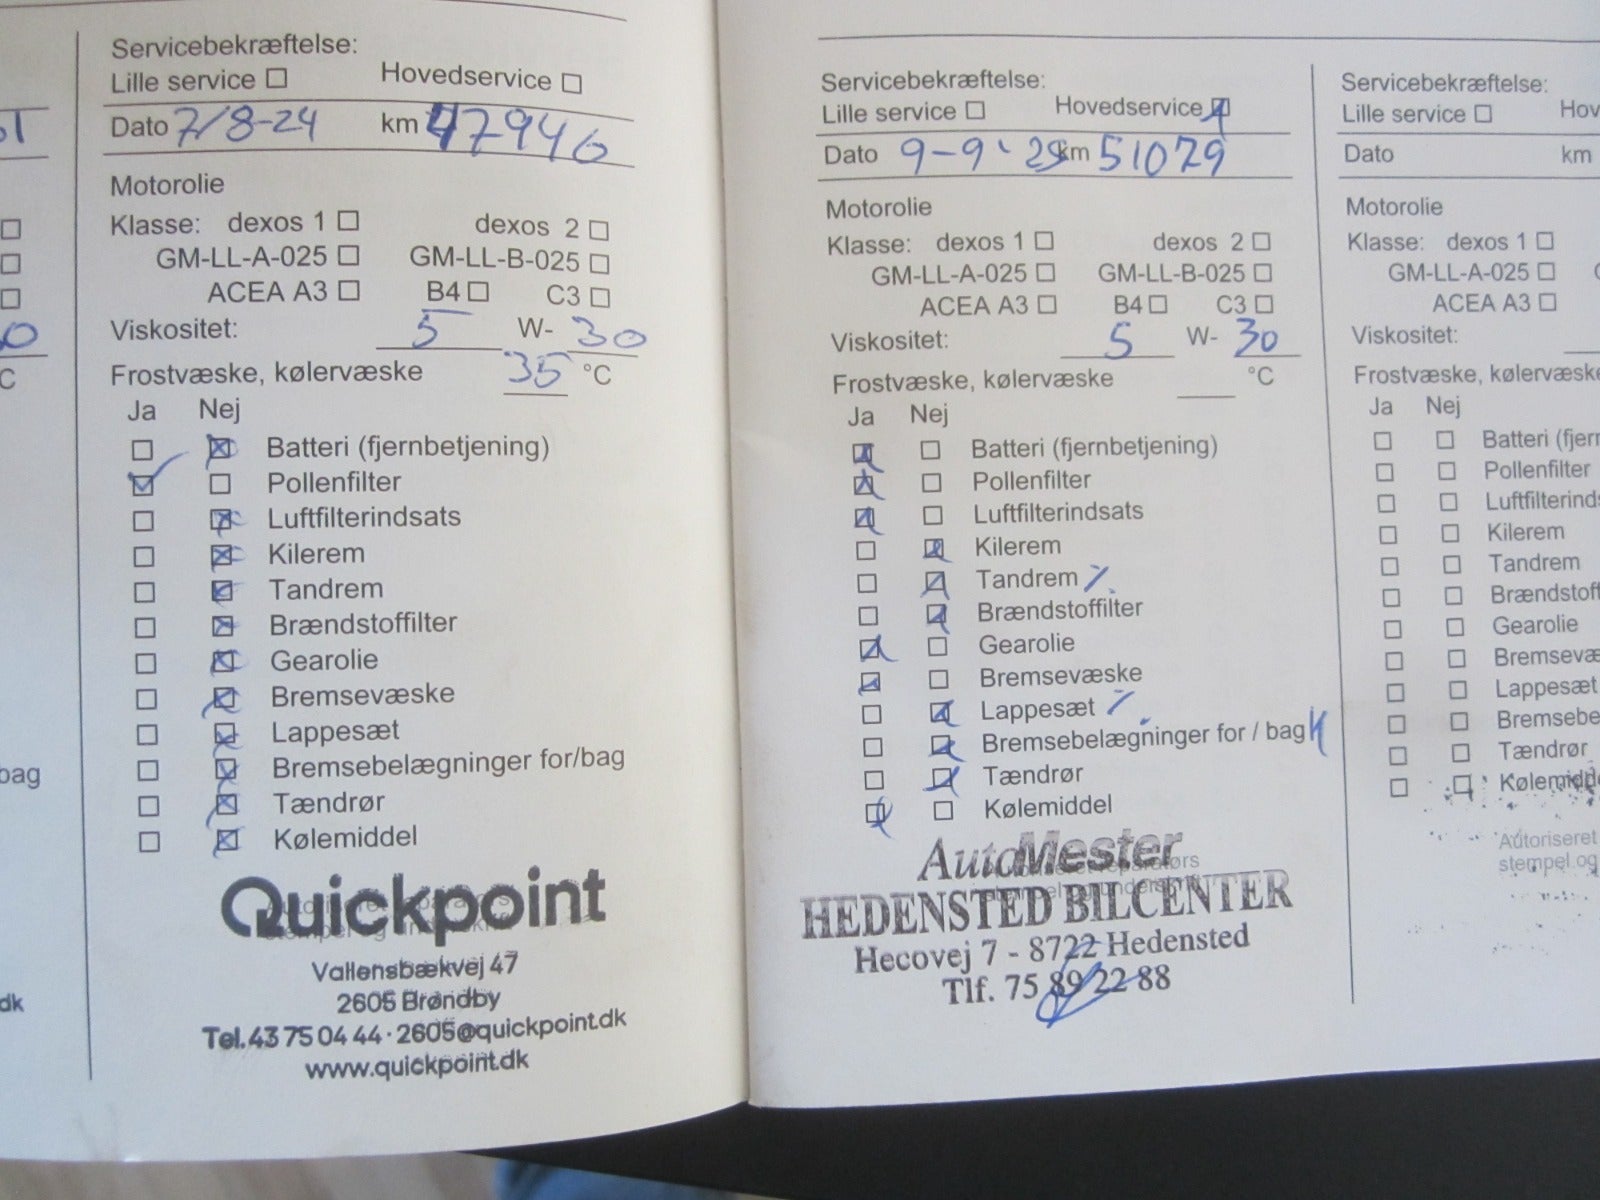 Servicebekræftelse:
Lille service Hovedservice
Dato 7/8-24 km 47946
Motorolie
Klasse: dexos 1 dexos 2
GM-LL-A-025 GM-LL-B-025
ACEA A3 B4 C3
Viskositet: 5 W- 30
Frostvæske, kølervæske 35 °C
Ja Nej
Batteri (fjernbetjening)
Pollenfilter
Luftfilterindsats
Kilerem
Tandrem
Brændstoffilter
Gearolie
Bremsevæske
Lappesæt
Bremsebelægninger for/bag
Tændrør
Kølemiddel
Quickpoint
Vallensbækvej 47
2605 Brøndby
Tel. 43 75 04 44 · 2605@quickpoint.dk
www.quickpoint.dk
C
bag
dk
Servicebekræftelse:
Lille service Hovedservice
Dato 9-9-25 km 51079
Motorolie
Klasse: dexos 1 dexos 2
GM-LL-A-025 GM-LL-B-025
ACEA A3 B4 C3
Viskositet: 5 W- 30
Frostvæske, kølervæske °C
Ja Nej
Batteri (fjernbetjening)
Pollenfilter
Luftfilterindsats
Kilerem
Tandrem %.
Brændstoffilter
Gearolie
Bremsevæske
Lappesæt %.
Bremsebelægninger for / bag
Tændrør
Kølemiddel
AutoMester
HEDENSTED BILCENTER
Hecovej 7 - 8722 Hedensted
Tlf. 75 89 22 88
Servicebekræftelse:
Lille service Hov
Dato km
Motorolie
Klasse: dexos 1
GM-LL-A-025
ACEA A3
Viskositet:
Frostvæske, kølervæske
Ja Nej
Batteri (fjern
Pollenfilter
Luftfilterinds
Kilerem
Tandrem
Brændstoff
Gearolie
Bremsevæ
Lappesæt
Bremsebe
Tændrør
Kølemidde
Autoriseret
stempel og